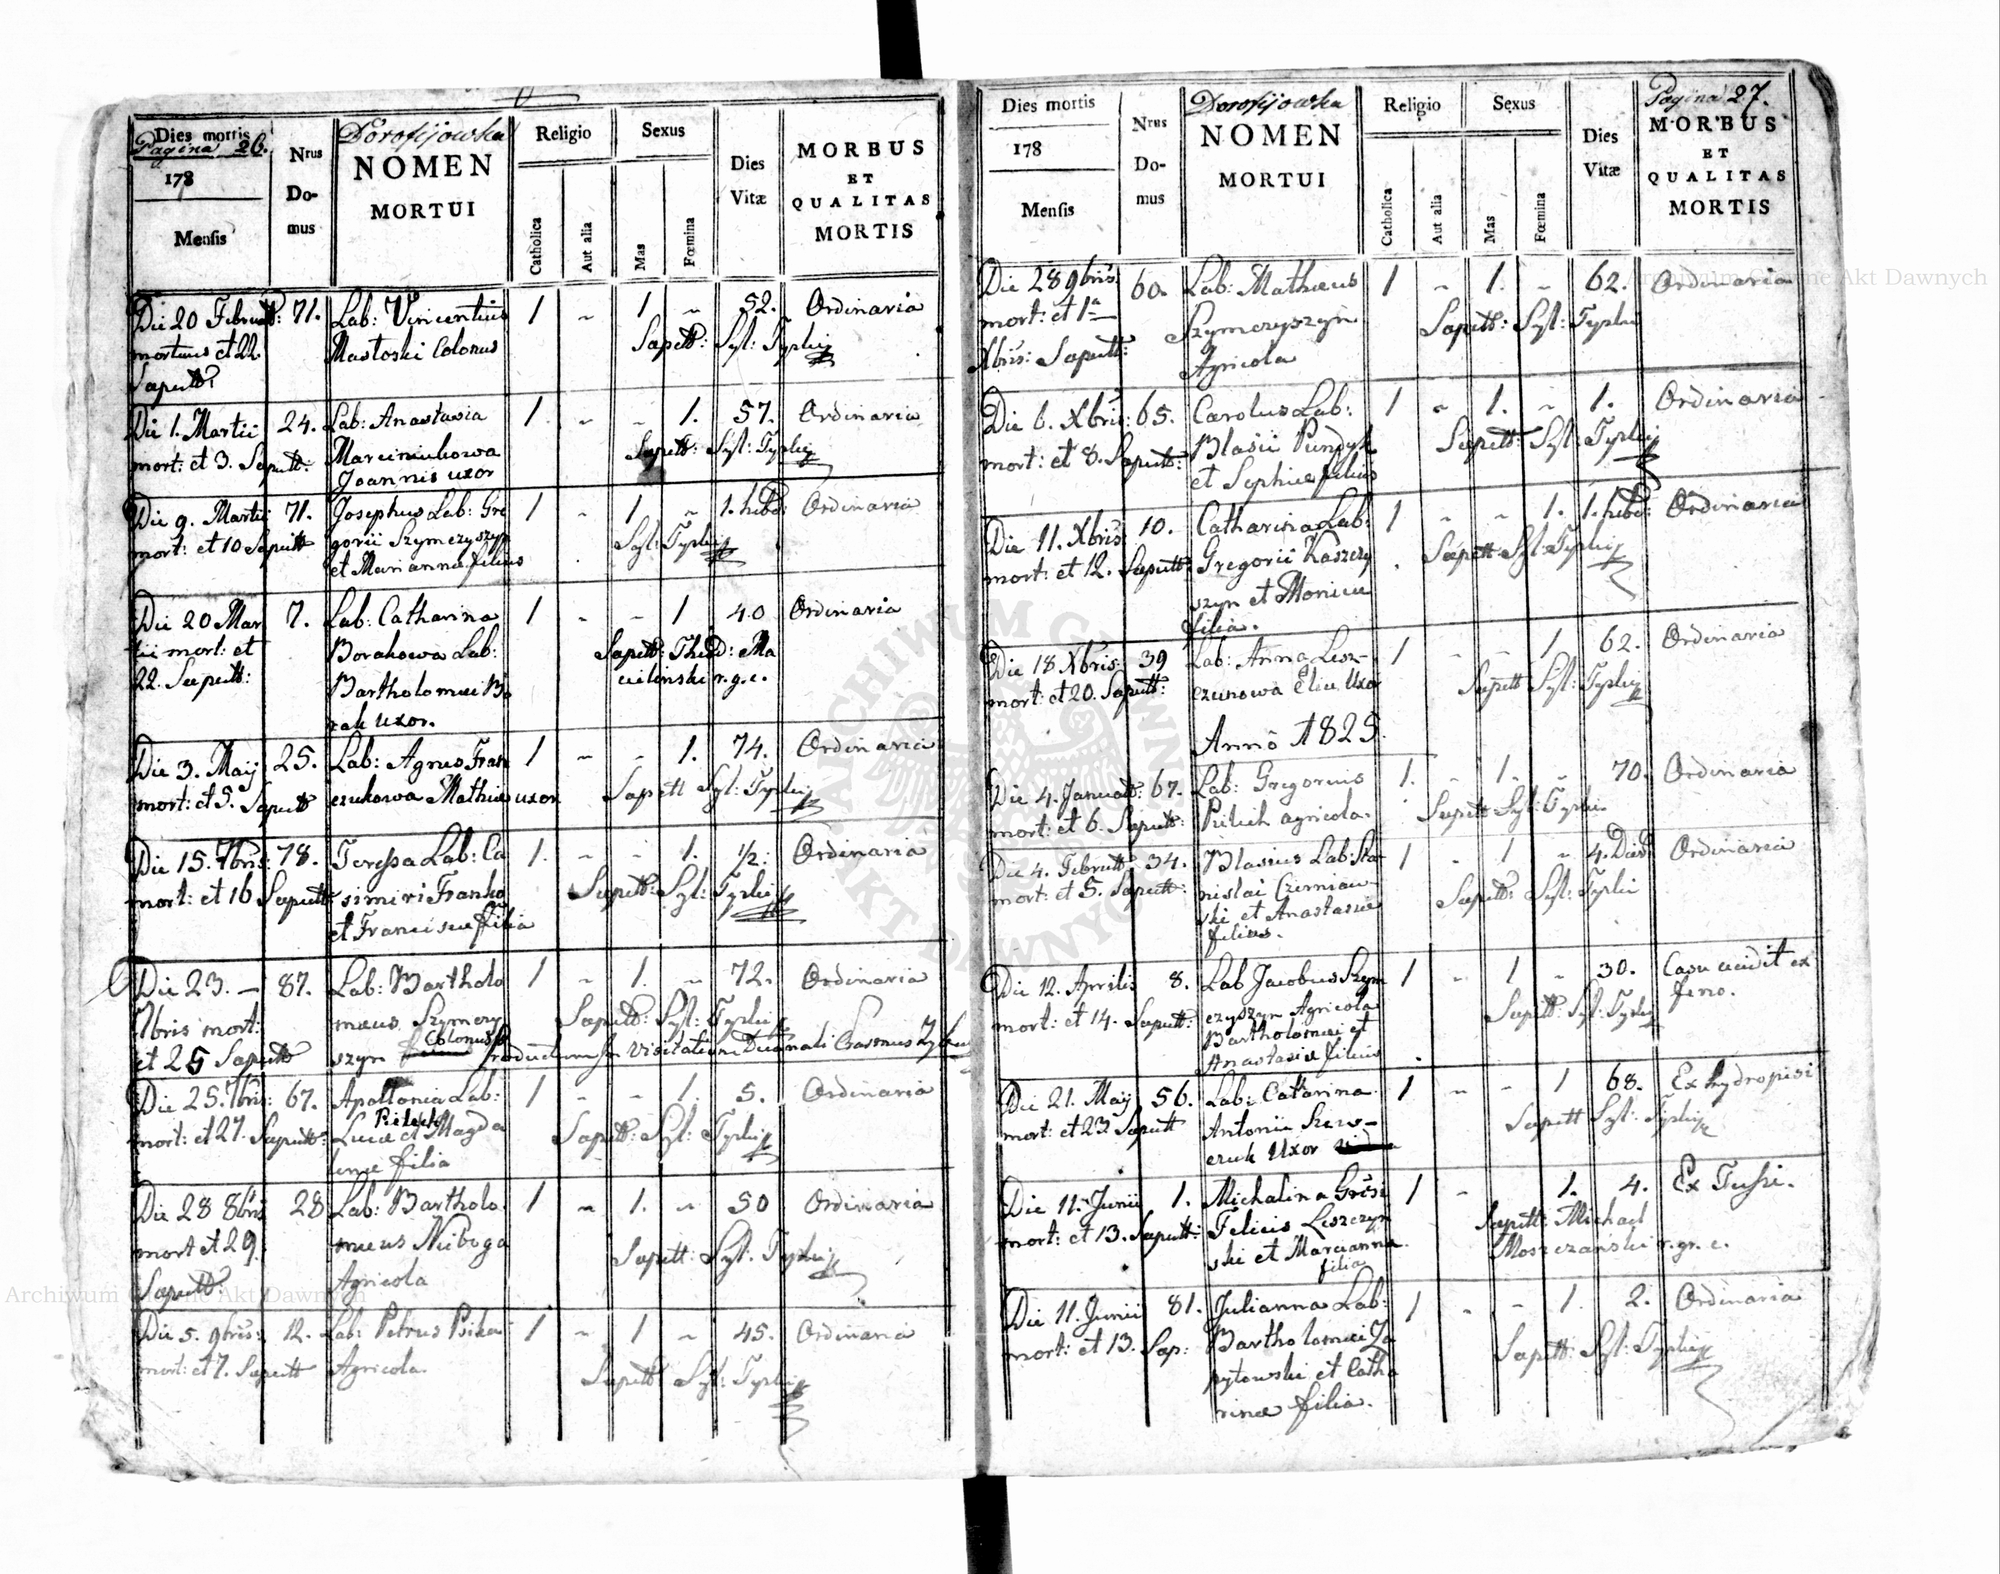 Dies mortis
Pagina 26.
178
Mensis
Nrus
Do-
mus
Dorofijowka
NOMEN
MORTUI
Religio
Catholica
Aut alia
Sexus
Mas
Fœmina
Dies
Vitæ
MORBUS
ET
QUALITAS
MORTIS
Die 20 Februar: 71. Lab: Vincentius 1 ~ 1 ~ 52. Ordinaria
mortuus et 22 Mastoski Colonus Sepult: Syl: Typlicz
Sepult:
Die 1. Martii 24. Lab: Anastasia 1 ~ ~ 1. 57. Ordinaria
mort: et 3. Sepult: Marciniukowa Sepult: Syl: Typlicz
Joannis uxor
Die 9. Martii 71. Josephus Lab: Gre 1 ~ 1 ~ 1. hebd: Ordinaria
mort: et 10 Sepult gorii Szymczyszyn Syl: Typlicz
et Marianna filius
Die 20 Mar 7. Lab: Catharina 1 ~ ~ 1 40 Ordinaria
tii mort: et Borakowa Lab: Sepult: Theod: Ma
22. Sepult: Bartholomei Bo cilinski r. g. c.
rak uxor.
Die 3. Maij 25. Lab: Agnes Fran 1 ~ ~ 1. 74. Ordinaria
mort: et 5. Sepult czukowa Mathiæ uxor Sepult Syl: Typlicz
Die 15. 7bris: 78. Teressa Lab: Ca 1. ~ ~ 1. 1/2: Ordinaria
mort: et 16 Sepult simiri Franko Sepult: Syl: Typlicz
et Franciscæ filia
Die 23. — 87. Lab: Bartholo 1 ~ 1. ~ 72. Ordinaria
7bris mort: mæus Szymczy Sepult: Syl: Typlicz
et 25 Sepult szyn Colonus Productum in Visitatione Decanali
Die 25. 7bris: 67. Apollonia Lab: 1 ~ ~ 1. 5. Ordinaria
mort: et 27. Sepult: Lucæ Pilech et Magda Sepult: Syl: Typlicz
lenæ filia
Die 28 8bris 28 Lab: Bartholo 1 ~ 1. ~ 50 Ordinaria
mort et 29. mæus Nieboga Sepult: Syl: Typlicz
Sepult: Agricola
Die 5. 9bris: 12. Lab: Petrus 1 ~ 1 ~ 45. Ordinaria
mort: et 7. Sepult Agricola. Sepult Syl: Typlicz
Dies mortis
178
Mensis
Nrus
Do-
mus
Dorofijowka
NOMEN
MORTUI
Religio
Catholica
Aut alia
Sexus
Mas
Fœmina
Dies
Vitæ
Pagina 27.
MORBUS
ET
QUALITAS
MORTIS
Die 28 9bris: 60. Lab: Mathæus 1 ~ 1. ~ 62. Ordinaria
mort: et 1ma Szymczyszyn Sepult: Syl: Typlicz
Xbris: Sepult: Agricola
Die 6. Xbris: 65. Carolus Lab: 1 ~ 1. ~ 1. Ordinaria
mort: et 8. Sepult: Blasii Pundyk Sepult: Syl: Typlicz
et Sophiæ filius
Die 11. Xbris: 10. Catharina Lab: 1 ~ ~ 1. 1. hebd: Ordinaria
mort: et 12. Sepult Gregorii Kaszczy Sepult: Syl: Typlicz
szyn et Monicæ
filia.
Die 18 Xbris: 39 Lab: Anna Lesz- 1 ~ ~ 1 62. Ordinaria
mort: et 20. Sepult: czunowa Eliæ Uxor Sepult Syl: Typlicz
Anno 1825.
Die 4. Januar: 67. Lab: Gregorius 1. ~ 1. ~ 70. Ordinaria
mort: et 6. Sepult: Pilich agricola. Sepult Syl: Typlicz
Die 4. Februar: 34. Blasius Lab Sta 1 ~ 1 ~ 4. Dies Ordinaria
mort: et 5. Sepult: nislai Czerniaw- Sepult: Syl: Typlicz
ski et Anastasiæ
filius.
Die 12. Aprilis 8. Lab Jacobus Szym 1 ~ 1 ~ 30. Casu cecidit ex
mort: et 14. Sepult: czyszyn Agricola Sepult: Syl: Typlicz feno.
Bartholomei et
Anastasiæ filius
Die 21. Maij 56. Lab: Catarina 1 ~ ~ 1 68. Ex hydropisi
mort: et 23 Sepult Antonii Szew- Sepult Syl: Typlicz
czuk Uxor
Die 11. Junii 1. Michalina Grosi 1 ~ 1. 4. Ex Tussi.
mort: et 13. Sepult: Felicis Leszczyn Sepult: Michael
ski et Marcianna Moszczanski r. gr. c.
filia
Die 11. Junii 81. Julianna Lab: 1 ~ ~ 1. 2. Ordinaria
mort: et 13. Sep: Bartholomei Za Sepult: Syl: Typlicz
pytowski et Catha
rinæ filia.
Archiwum Główne Akt Dawnych
Archiwum Główne Akt Dawnych
ARCHIWUM GŁÓWNE AKT DAWNYCH